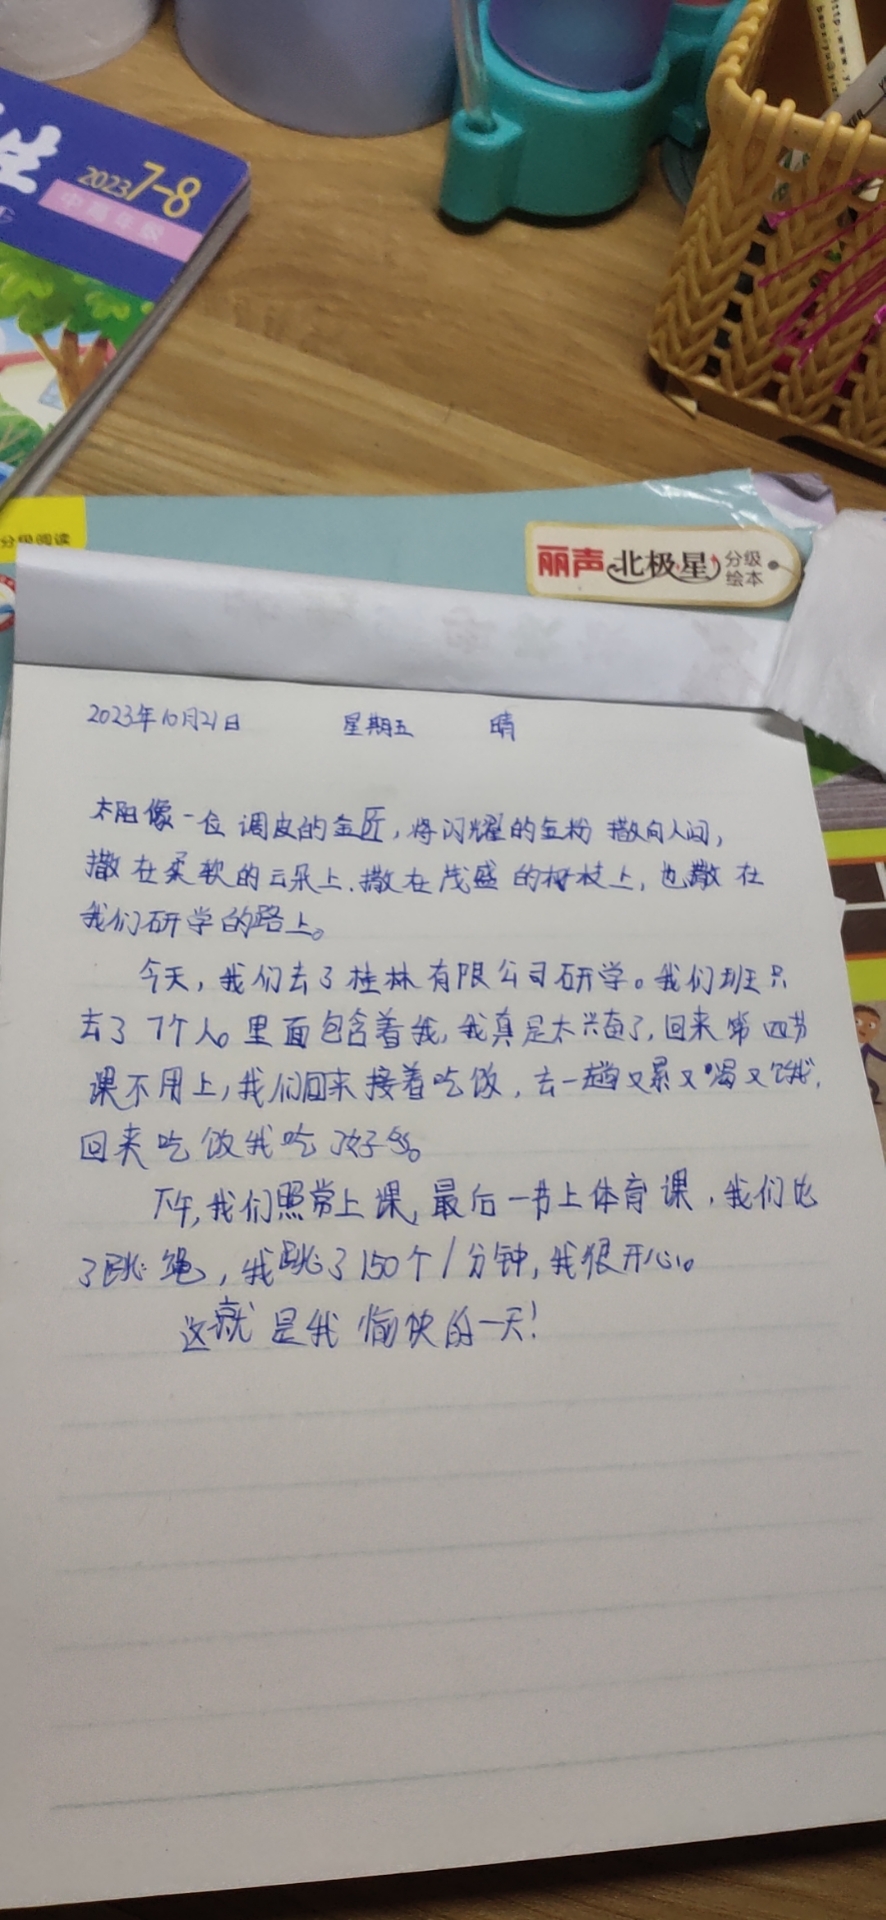 生
2023 7-8
中高年级
分级阅读
丽声北极星分级绘本
2023年10月21日 星期五 晴
太阳像一位调皮的金匠，将闪耀的金粉撒向人间，
撒在柔软的云朵上，撒在茂盛的树枝上，也撒在
我们研学的路上。
今天，我们去了桂林有限公司研学。我们班只
去了7个人。里面包含着我，我真是太兴奋了，回来第四节
课不用上，我们回来接着吃饭，去一趟又累又渴又饿，
回来吃饭我吃了好多。
下午，我们照常上课，最后一节上体育课，我们比
了跳绳，我跳了150个/分钟，我很开心。
这就是我愉快的一天！